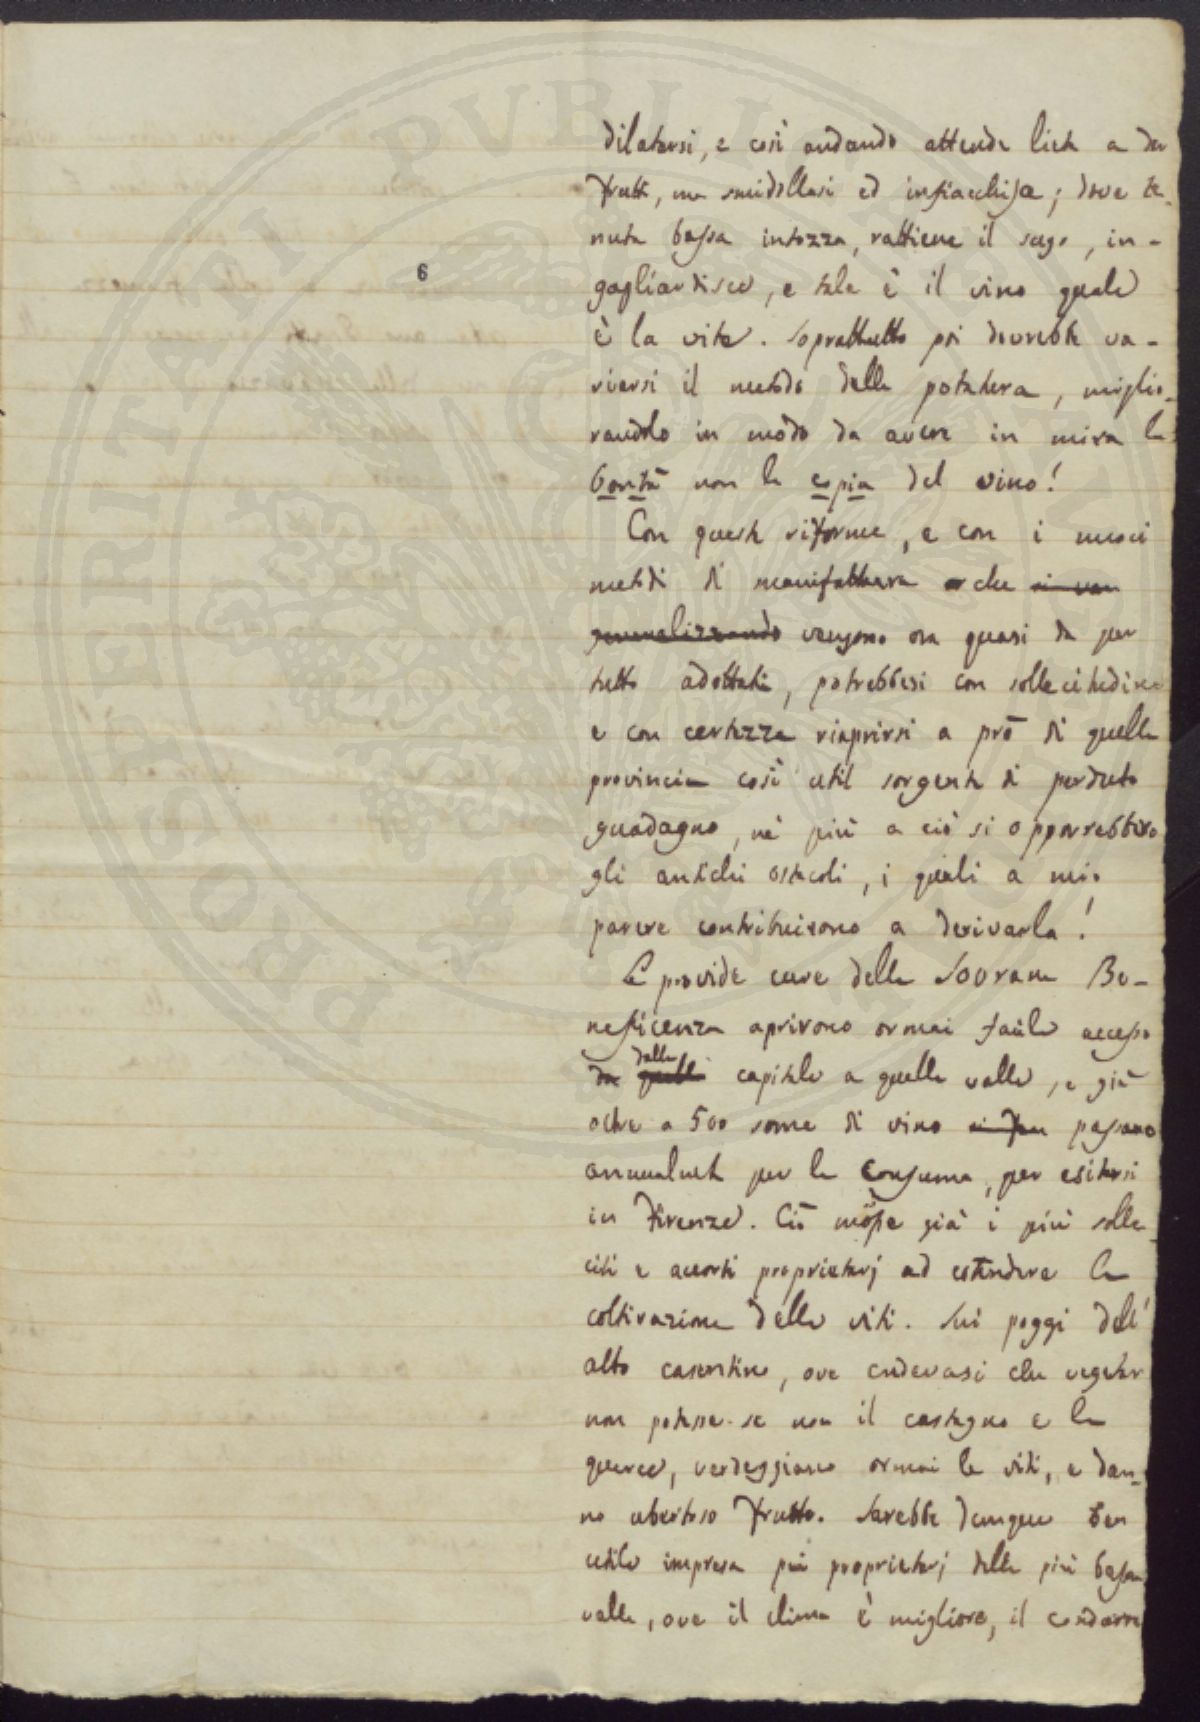 dilatarsi, e così andando attende lieta a dar
frutti, ma smidollasi ed infiacchisce; dove te-
nuta bassa intozza, rattiene il sugo, in-
gagliardisce, e tale è il vino quale
6
è la vite. Soprattutto poi dovrebbe va-
riarsi il metodo della potatura, miglio-
randolo in modo da avere in mira la
bontà non la copia del vino!
Con queste riforme, e con i nuovi
metodi di manifattura che si van
generalizzando vengono ora quasi da per
tutto adottati, potrebbesi con sollecitudine
e con certezza riaprirsi a prò di quella
provincia così util sorgente di perduto
guadagno, nè più a ciò si opporrebbero
gli antichi ostacoli, i quali a mio
parere contribuirono a derivarla!
Le provide cure della Sovrana Be-
neficenza aprirono ormai facile accesso
dalla
da quella capitale a quella valle, e già
oltre a 500 some di vino si fan passano
annualmte per la Consuma, per esitarsi
in Firenze. Ciò mosse già i più solle-
citi e accorti proprietarj ad estendere la
coltivazione delle viti. Sui poggi dell'
alto casentino, ove credevasi che vegetar
non potesse se non il castagno e la
querce, verdeggiano ormai le viti, e dan-
no ubertoso frutto. Sarebbe dunque ben
utile impresa pei proprietarj della più bassa
valle, ove il clima è migliore, il condurre
PROSPERITATI PUBLICAE